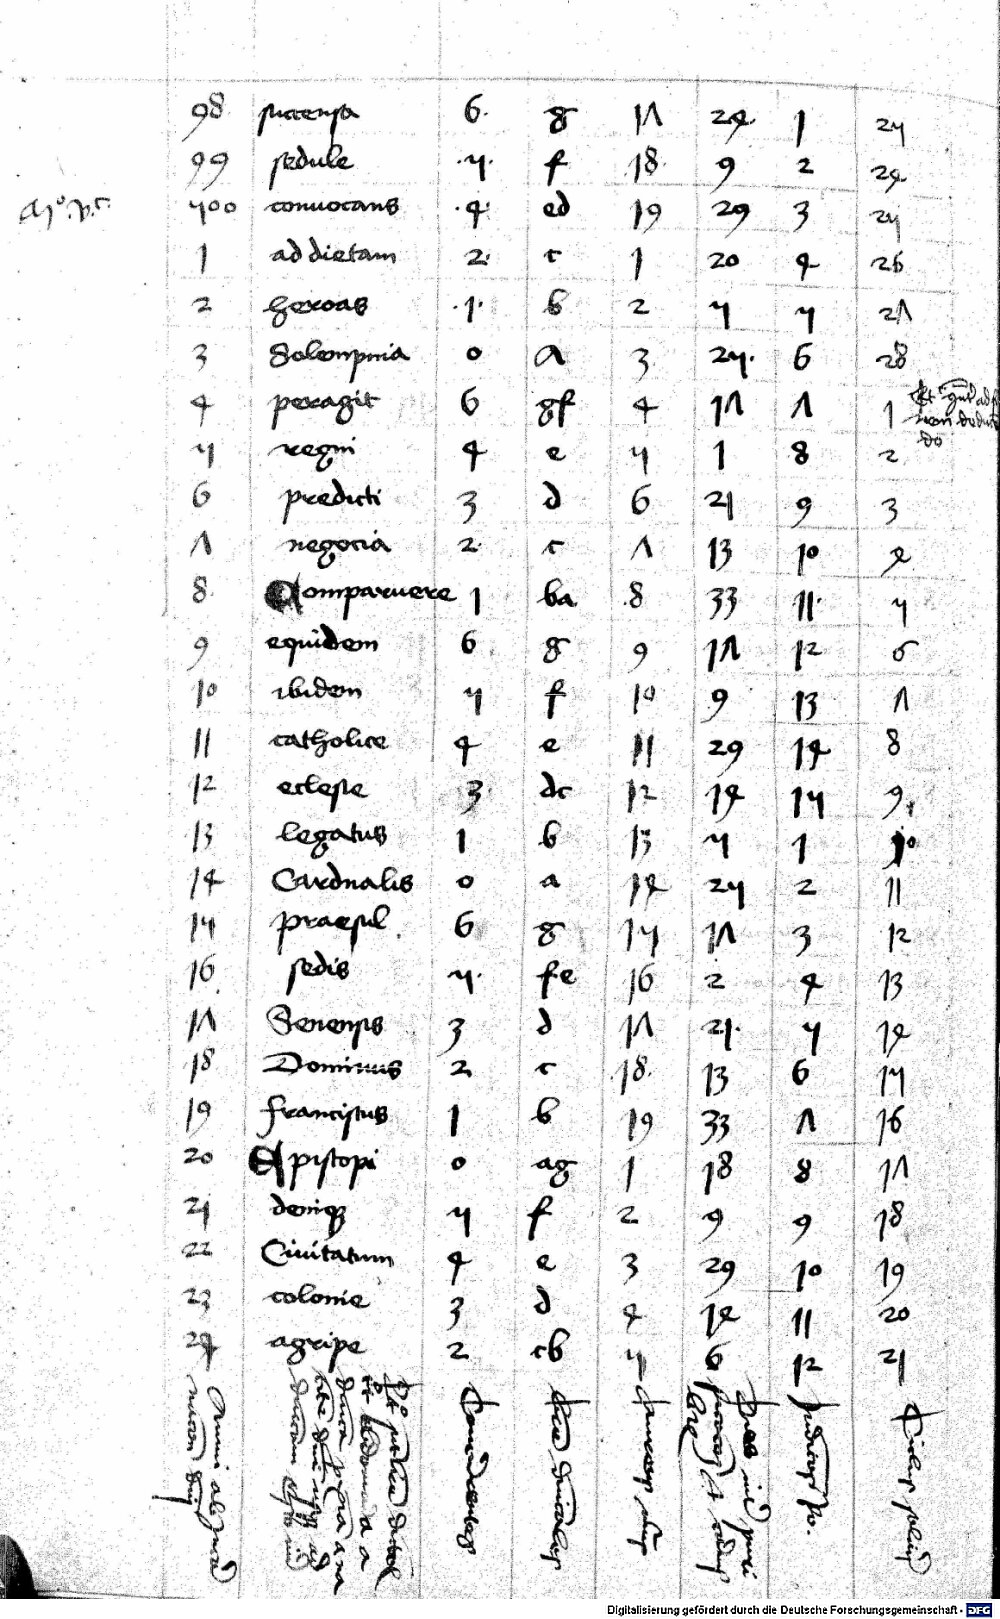 98 succensa 6 g 17 24 1 25
99 sedule 5 f 18 9 2 24
500 conuocans 4 ed 19 29 3 25
1 ad dietam 2 c 1 20 4 26
2 heroas 1 b 2 5 5 27
3 Solempnia 0 a 3 25 6 28
4 peragit 6 gf 4 17 7 1
5 regni 4 e 5 1 8 2
6 predicti 3 d 6 21 9 3
7 negocia 2 c 7 13 10 4
8 Comparuere 1 ba 8 33 11 5
9 equidem 6 g 9 17 12 6
10 ibidem 5 f 10 9 13 7
11 catholice 4 e 11 29 14 8
12 eclesie 3 dc 12 14 15 9
13 legatus 1 b 13 5 1 10
14 Cardnalis 0 a 14 25 2 11
15 praesul 6 g 15 17 3 12
16 sedis 5 fe 16 2 4 13
17 Senensis 3 d 17 21 5 14
18 Dominus 2 c 18 13 6 15
19 franciscus 1 b 19 33 7 16
20 Episcopi 0 ag 1 18 8 17
21 deniq 5 f 2 9 9 18
22 Ciuitatum 4 e 3 29 10 19
23 colonie 3 d 4 14 11 20
24 agripe 2 cb 5 6 12 21
Digitalisierung gefördert durch die Deutsche Forschungsgemeinschaft - DFG